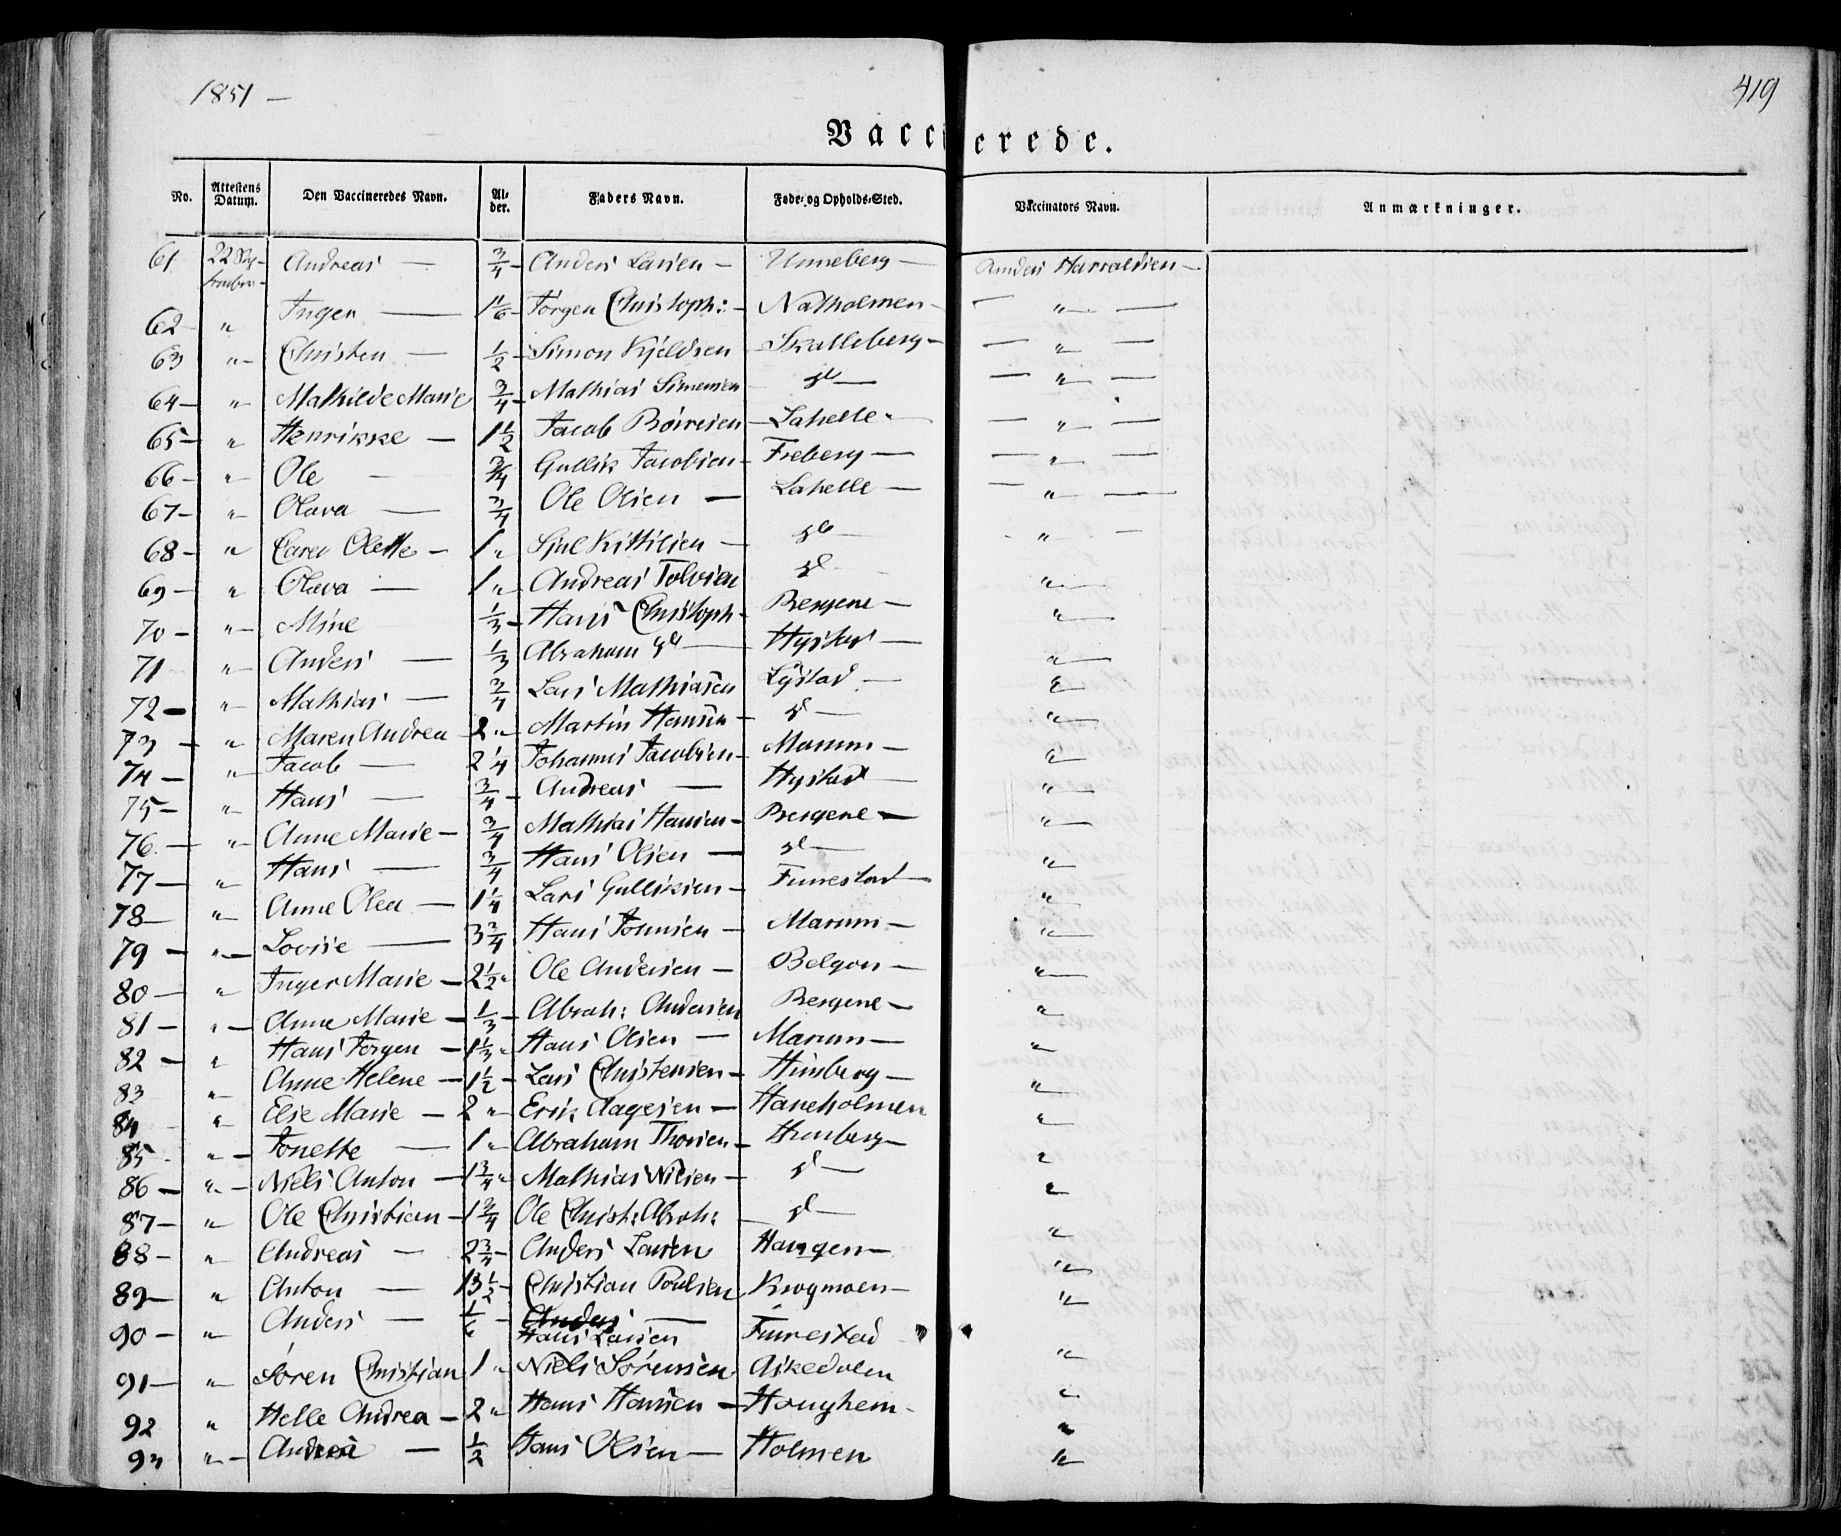 1851 —
419
Vaccinerede.
No. Attestens Datum. Den Vaccineredes Navn. Alder. Faders Navn. Føde- og Opholds-Sted. Vaccinators Navn. Anmærkninger.
61 22 Sep-tember- Andreas — 3/4 - Anders Larsen - Unneberg - Anders Harraldsen -
62 " Inger — 1 1/6 - Jörgen Christoph: - Natholmen - — " —
63 " Christen — 1/2 - Simon Kjeldsen - Skalleberg - — " —
64 - " Mathilde Marie 3/4 - Mathias Simensen do — — " —
65 - " Henrikke — 1 1/2 Jacob - Lahelle - — " —
66 - " Ole - 3/4 Gullik Jacobsen - Freberg — — " —
67 - " Olava — 3/4 Ole Olsen — Lahelle — — " —
68 - " Caren Olette - 1 " Sjul Kittilsen — do — " —
69 - " Olava — 1 " Andreas Tolvsen do - "
70 - " Mine 1/3 - Hans Christoph - Bergene — "
71 " Anders — 1/3 Abraham do — Hystad — "
72 - " Mathias — 3/4 Lars Mathiasen Lystad — "
73 - " Maren Andrea 2 " Martin Hansen - do — "
74 - " Jacob — 2 1/4 Johannes Jacobsen - Marum — "
75 - " Hans — 3/4 - Andreas — Hystad — "
76 - " Anne Marie - 3/4 Mathias Hansen - Bergene — "
77 - " Hans — 3/4 Hans Olsen — do — "
78 - " Anne Olea - 1 1/4 Lars Gulliksen - Furrestad — "
79 - " Lovise — 3 3/4 Hans Johnsen - Marum — "
80 - " Inger Marie - 2 1/2 " Ole Andersen - "
81 - " Anne Marie - 1/3 - Abrah: Andersen Bergene - "
82 - " Hans Jörgen - 1 1/3 " Hans Olsen — Marum — "
83 " Anne Helene - 1 1/2 - Lars Christensen - Himberg - "
84 " Else Marie - 2 " Erik Aagesen - Haneholmen "
85 - " Jonette — 1 " Abraham Thorsen - "
86 - " Niels Anton - 1 3/4 " Mathias Nilsen - do — "
87 - " Ole Christian - 1 3/4 Ole Christ: Abrah: - do — "
88 - " Andreas - 2 3/4 - Anders Larsen Haugen — "
89 - " Anton — 13 1/2 - Christian Poulsen Krogmoen - "
90 - " Anders — 1/6 - Anders —
Hans Larsen Furrestad "
91 - " Sören Christian 1 " Niels Sörensen Askedalen "
92 " Helle Andrea - 2 " Hans Hansen - "
93 " Andrea — 1/2 Hans Olsen — Holmen "